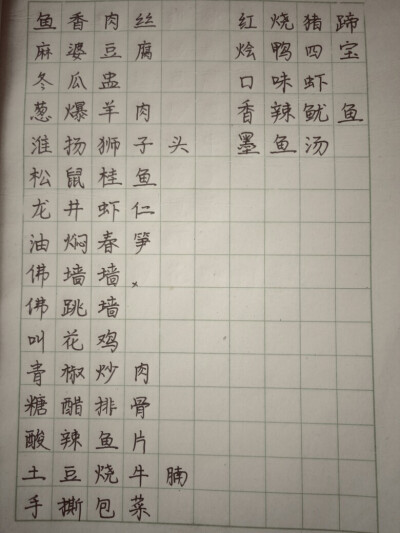 鱼香肉丝
麻婆豆腐
冬瓜盅
葱爆羊肉
淮扬狮子头
松鼠桂鱼
龙井虾仁
油焖春笋
佛墙墙.
佛跳墙
叫花鸡
青椒炒肉
糖醋排骨
酸辣鱼片
土豆烧牛腩
手撕包菜
红烧猪蹄
烩鸭四宝
口味虾
香辣鱿鱼
墨鱼汤